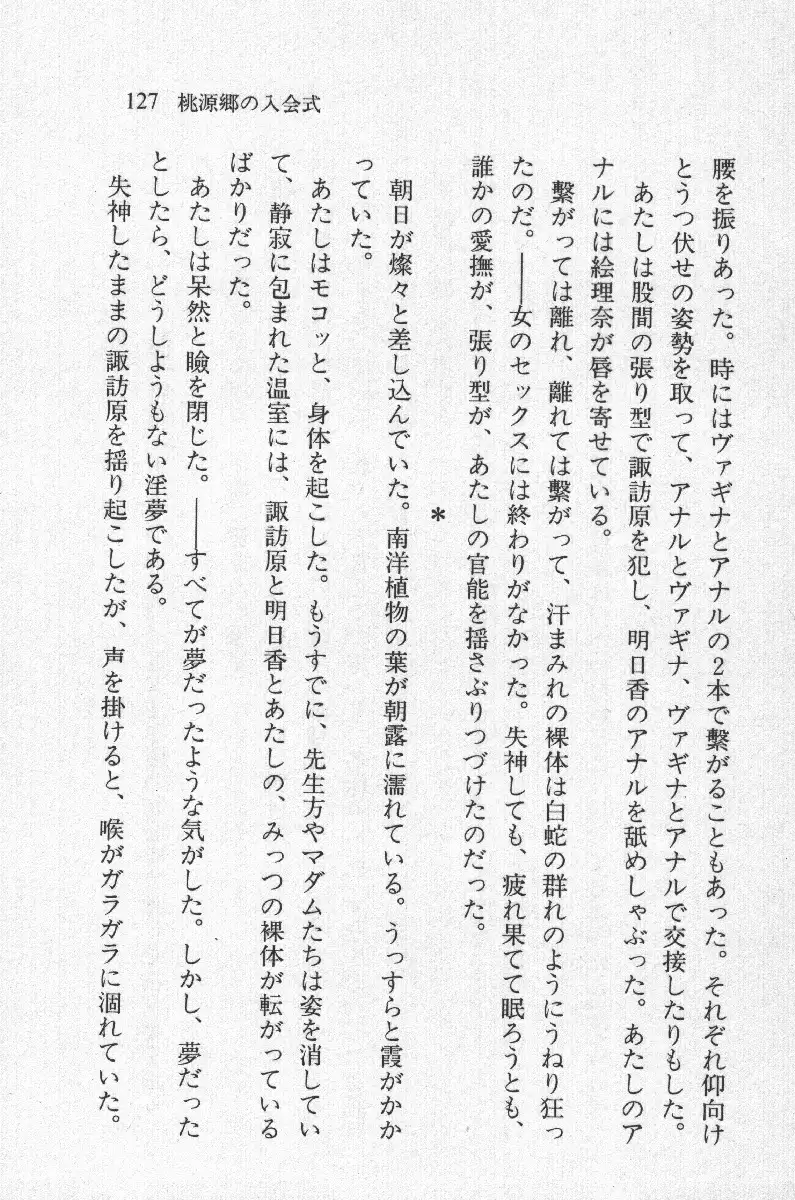 127 桃源郷の入会式
腰を振りあった。時にはヴァギナとアナルの2本で繋がることもあった。それぞれ仰向け
とうつ伏せの姿勢を取って、アナルとヴァギナ、ヴァギナとアナルで交接したりもした。
あたしは股間の張り型で諏訪原を犯し、明日香のアナルを舐めしゃぶった。あたしのア
ナルには絵理奈が唇を寄せている。
繋がっては離れ、離れては繋がって、汗まみれの裸体は白蛇の群れのようにうねり狂っ
たのだ。――女のセックスには終わりがなかった。失神しても、疲れ果てて眠ろうとも、
誰かの愛撫が、張り型が、あたしの官能を揺さぶりつづけたのだった。
*
朝日が燦々と差し込んでいた。南洋植物の葉が朝露に濡れている。うっすらと霞がかか
っていた。
あたしはモコッと、身体を起こした。もうすでに、先生方やマダムたちは姿を消してい
て、静寂に包まれた温室には、諏訪原と明日香とあたしの、みっつの裸体が転がっている
ばかりだった。
あたしは呆然と瞼を閉じた。――すべてが夢だったような気がした。しかし、夢だった
としたら、どうしようもない淫夢である。
失神したままの諏訪原を揺り起こしたが、声を掛けると、喉がガラガラに涸れていた。